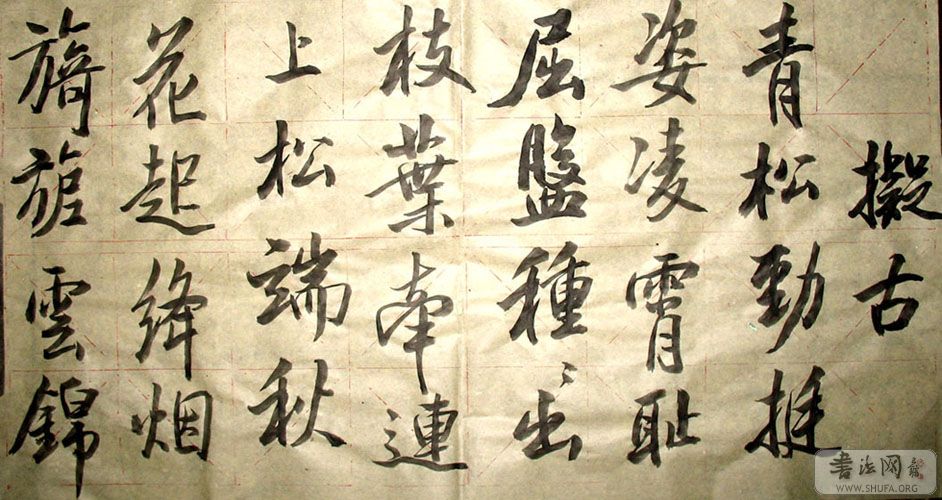 擬古
青松勁挺
姿凌霄耻
屈盤種〻出
枝葉牽連
上松端秋
花起絳烟
旖旎雲錦
書法网
WWW.SHUFA.ORG